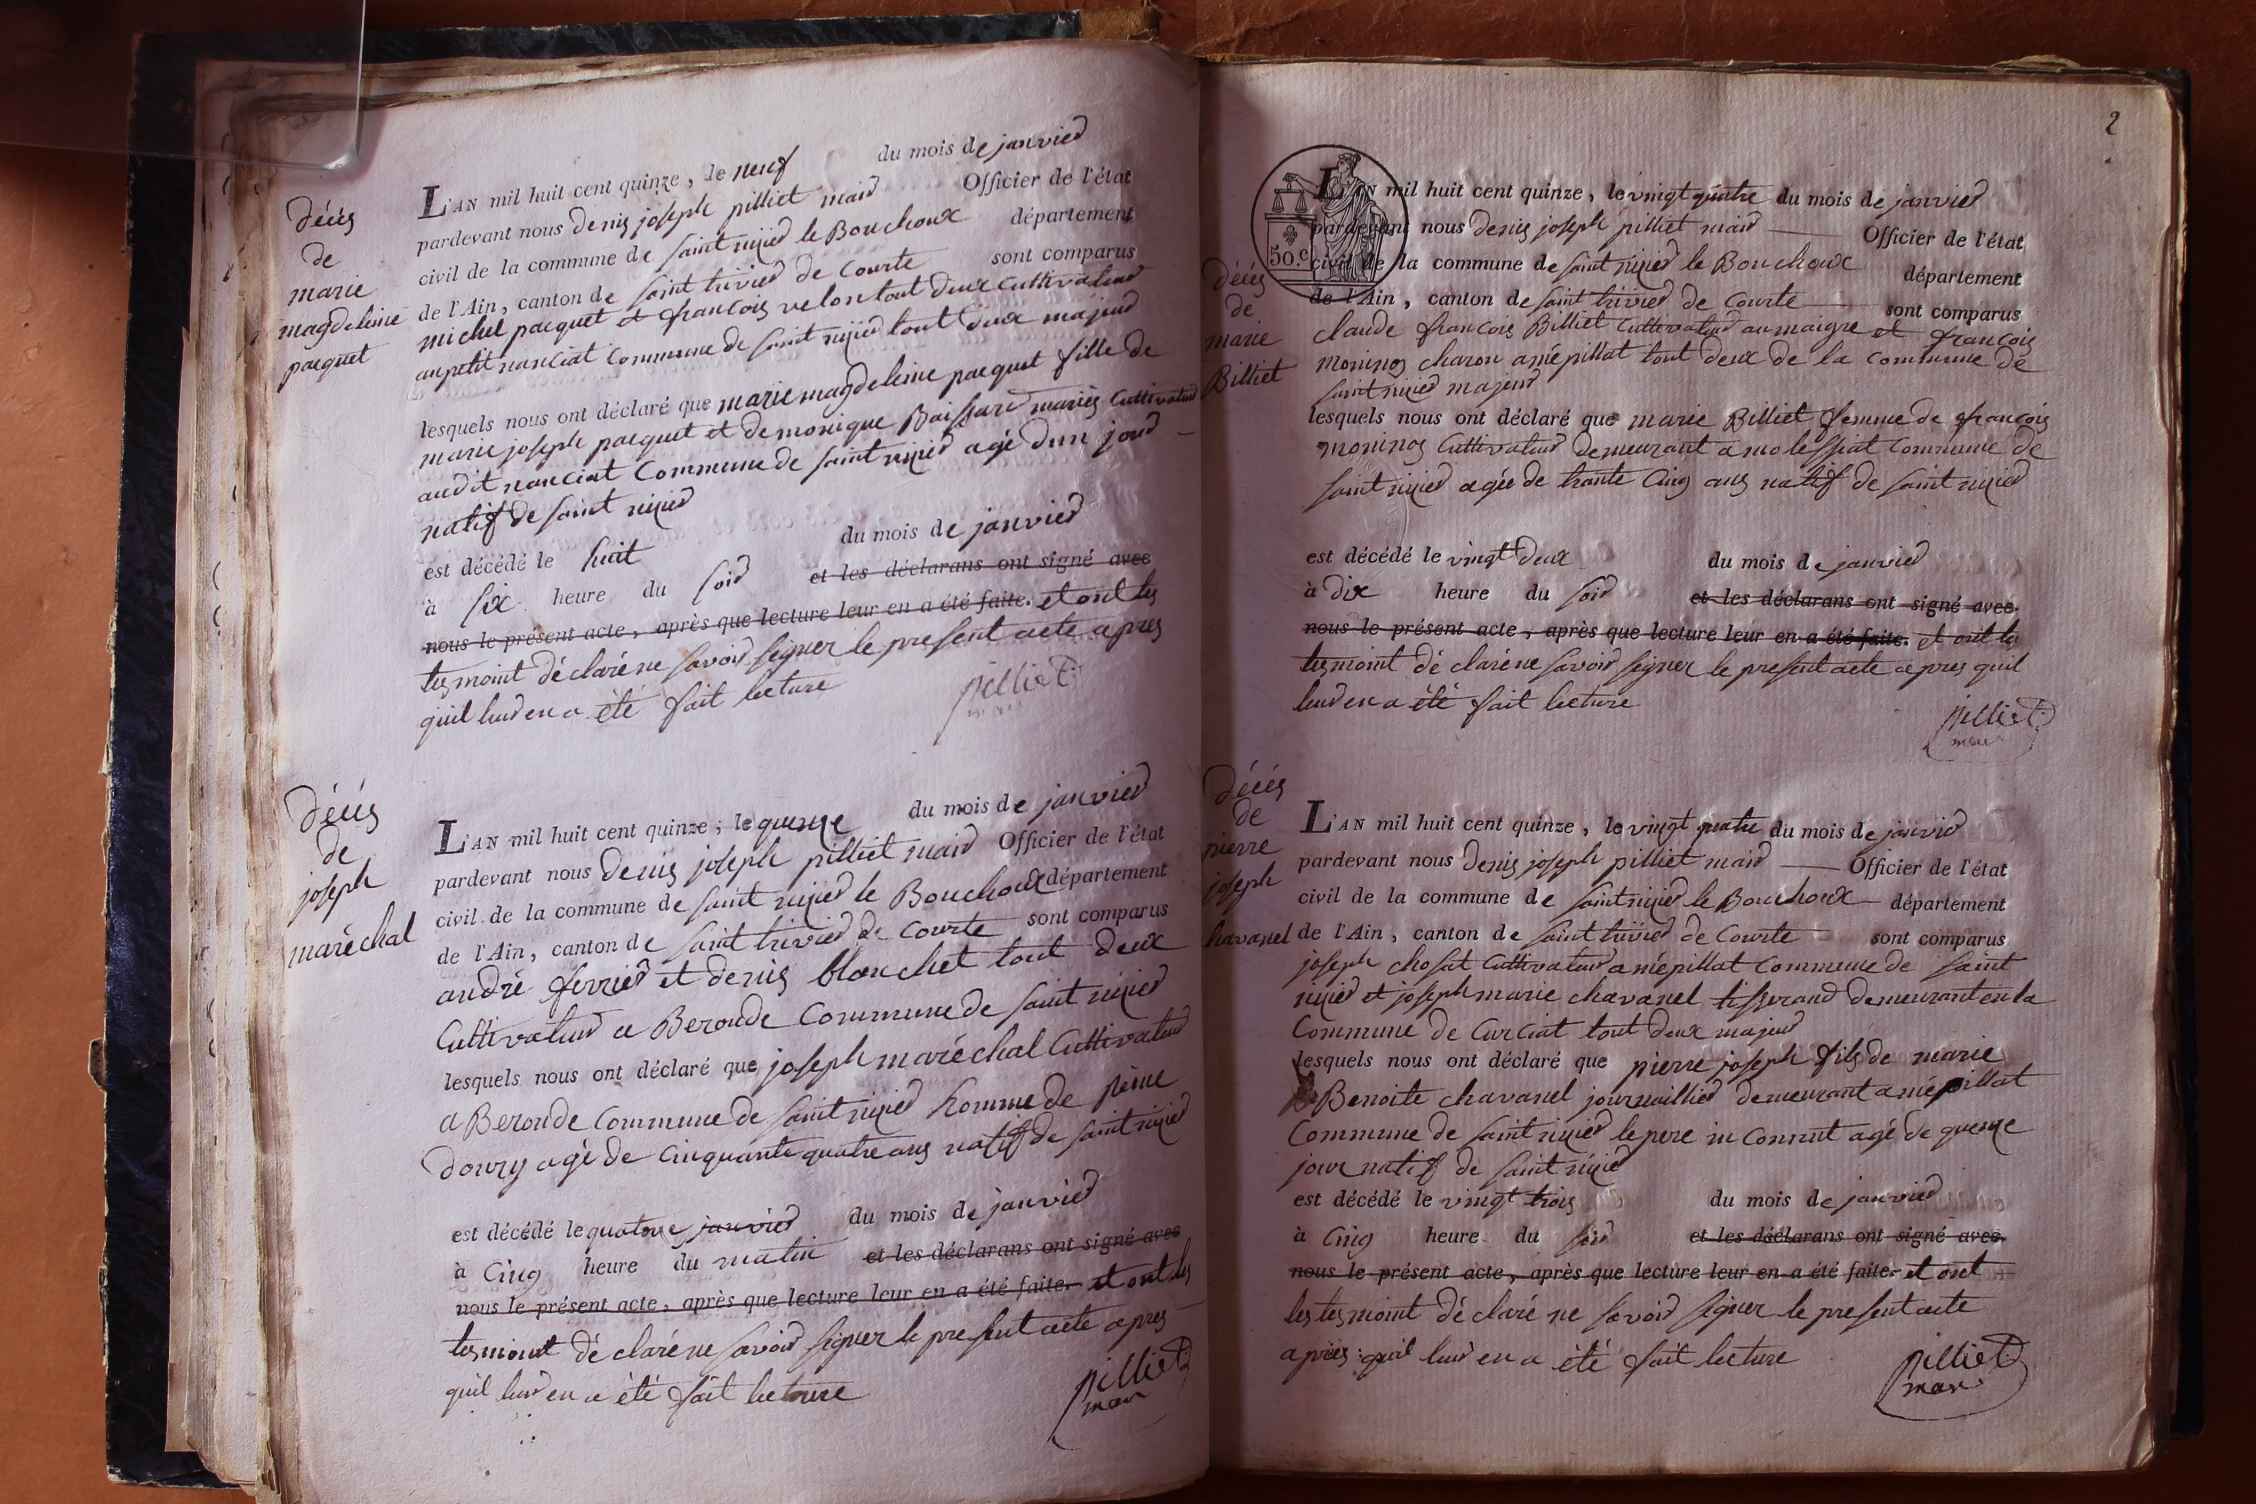 décés
de
marie
magdeleine
pacquet
L'AN mil huit cent quinze, le neuf du mois de janvier
pardevant nous denis joseph pilliet mair Officier de l'état
civil de la commune de saint nizier le Bouchoux département
de l'Ain, canton de saint trivier de Courte sont comparus
michel pacquet et francois velon tout deux cultivateur
au petit nanciat commune de saint nizier tout deux majeur
lesquels nous ont déclaré que marie magdeleine pacquet fille de
marie joseph pacquet et de monique Boissard mariés cultivateur
audit nanciat commune de saint nizier agé dun jour
natif de saint nizier
est décédé le huit du mois de janvier
à six heure du soir et les déclarans ont signé avec
nous le présent acte, après que lecture leur en a été faite. et ont les
tesmoint déclaré ne savoir signer le present acte apres
quil leur en a été fait lecture
pilliet
mair
décés
de
joseph
maréchal
L'AN mil huit cent quinze, le quenze du mois de janvier
pardevant nous denis joseph pilliet mair Officier de l'état
civil de la commune de saint nizier le Bouchoux département
de l'Ain, canton de saint trivier de Courte sont comparus
andré ferrier et denis blanchet tout deux
Cultivateur a Beronde Commune de saint nizier
lesquels nous ont déclaré que joseph maréchal Cultivateur
a Beronde commune de saint nizier homme de
agé de cinquante quatre ans natif de saint nizier
est décédé le quatorze janvier du mois de janvier
à Cinq heure du matin et les déclarans ont signé avec
nous le présent acte, après que lecture leur en a été faite. et ont les
tesmoint déclaré ne savoir signer le present acte apres
quil leur en a été fait lecture
pilliet
mair
2
50.c
décés
de
marie
Billiet
L'AN mil huit cent quinze, le vingt quatre du mois de janvier
pardevant nous denis joseph pilliet mair Officier de l'état
civil de la commune de saint nizier le Bouchoux département
de l'Ain, canton de saint trivier de Courte sont comparus
claude francois Billiet cultivateur au maigre et francois
moninos charon a mépillat tout deux de la commune de
saint nizier majeur
lesquels nous ont déclaré que marie Billiet femme de francois
moninos Cultivateur demeurant a molessiat commune de
saint nizier agée de trante Cinq ans natif de saint nizier
est décédé le vingt deux du mois de janvier
à dix heure du soir et les déclarans ont signé avec
nous le présent acte, après que lecture leur en a été faite. et ont les
tesmoint déclaré ne savoir signer le present acte apres quil
leur en a été fait lecture
pilliet
mair
décés
de
pierre
joseph
chavanel
L'AN mil huit cent quinze, le vingt quatre du mois de janvier
pardevant nous denis joseph pilliet mair Officier de l'état
civil de la commune de saint nizier le Bouchoux département
de l'Ain, canton de saint trivier de Courte sont comparus
joseph chosat Cultivateur a mépillat commune de saint
nizier et joseph marie chavanel tisserand demeurant en la
Commune de Curciat tout deux majeur
lesquels nous ont déclaré que pierre joseph fils de marie
Benoite chavanel journaillier demeurant a mépillat
Commune de saint nizier le pere in connut agé de quenze
jour natif de saint nizier
est décédé le vingt trois du mois de janvier
à Cinq heure du soir et les déclarans ont signé avec
nous le présent acte, après que lecture leur en a été faite. et ont
les tesmoint déclaré ne savoir signer le present acte
après quil leur en a été fait lecture
pilliet
mair